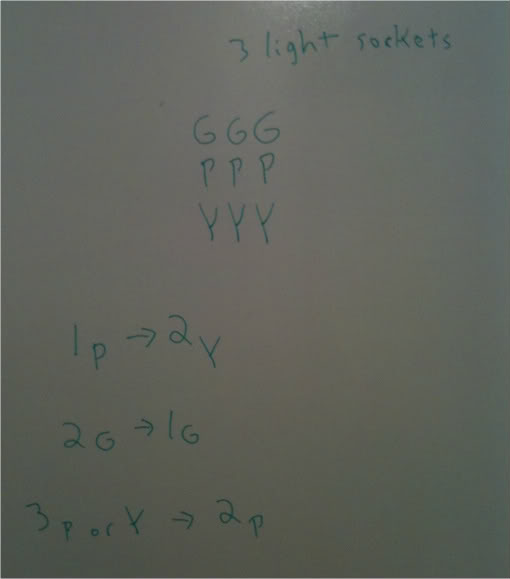 3 light sockets
G G G
P P P
Y Y Y
1P → 2Y
2G → 1G
3P or Y → 2P